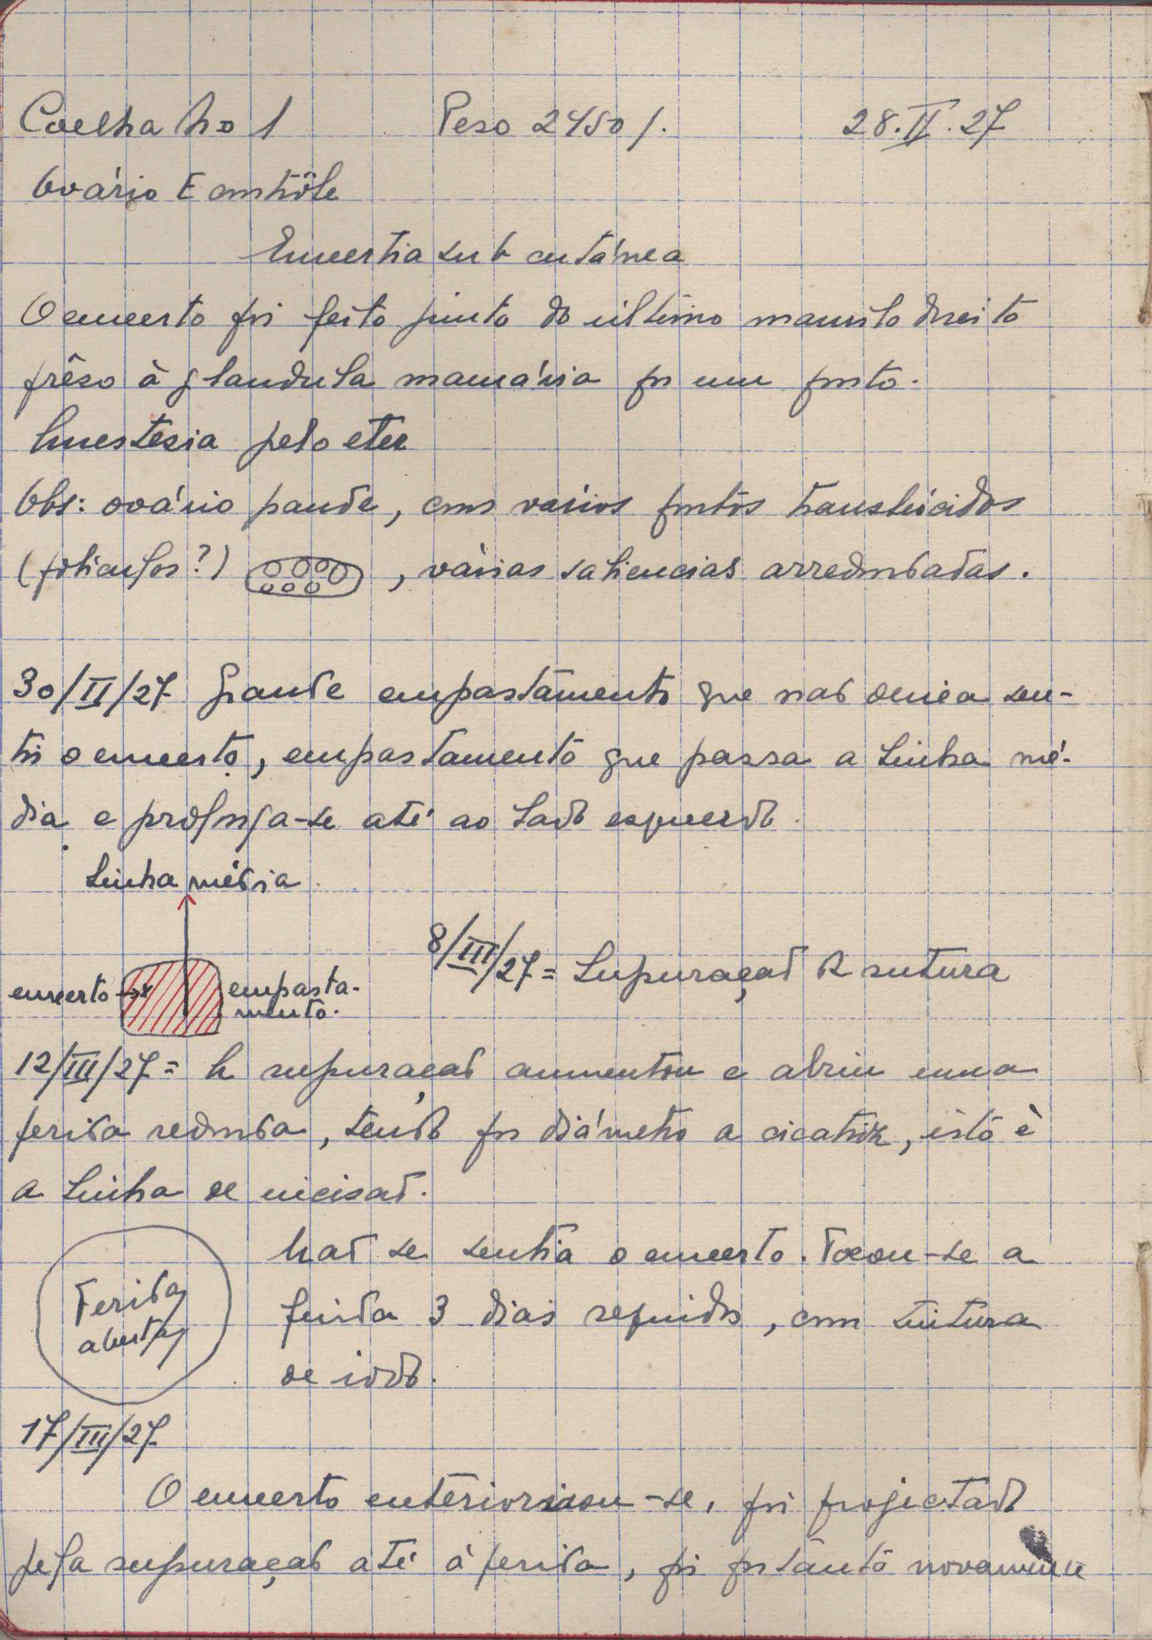 Coelha No 1 Peso 2450 g. 28.II.27
Ovário E contrôle
Enxertia sub cutánea
O enxerto foi feito junto do último mamilo direito
prêso à glandula mamária por um ponto.
Anestesia pelo eter
Obs: ovário grande, com varios pontos translúcidos
(foliculos?) , várias saliencias arredondadas.
30/II/27 Grande empastamento que não deixa sen-
tir o enxerto, empastamento que passa a linha mé-
dia e prolonga-se até ao lado esquerdo.
Linha média
enxerto
empasta-
mento.
8/III/27 = Supuração da sutura
12/III/27 = A supuração aumentou e abriu uma
ferida redonda, tendo por diámetro a cicatriz, isto è
a linha de incisão.
Não se sentia o enxerto. Tocou-se a
Ferida
aberta
ferida 3 dias seguidos, com tintura
de iodo.
17/III/27
O enxerto exteriorisou-se, foi projectado
pela supuração até à ferida, foi portanto novamente